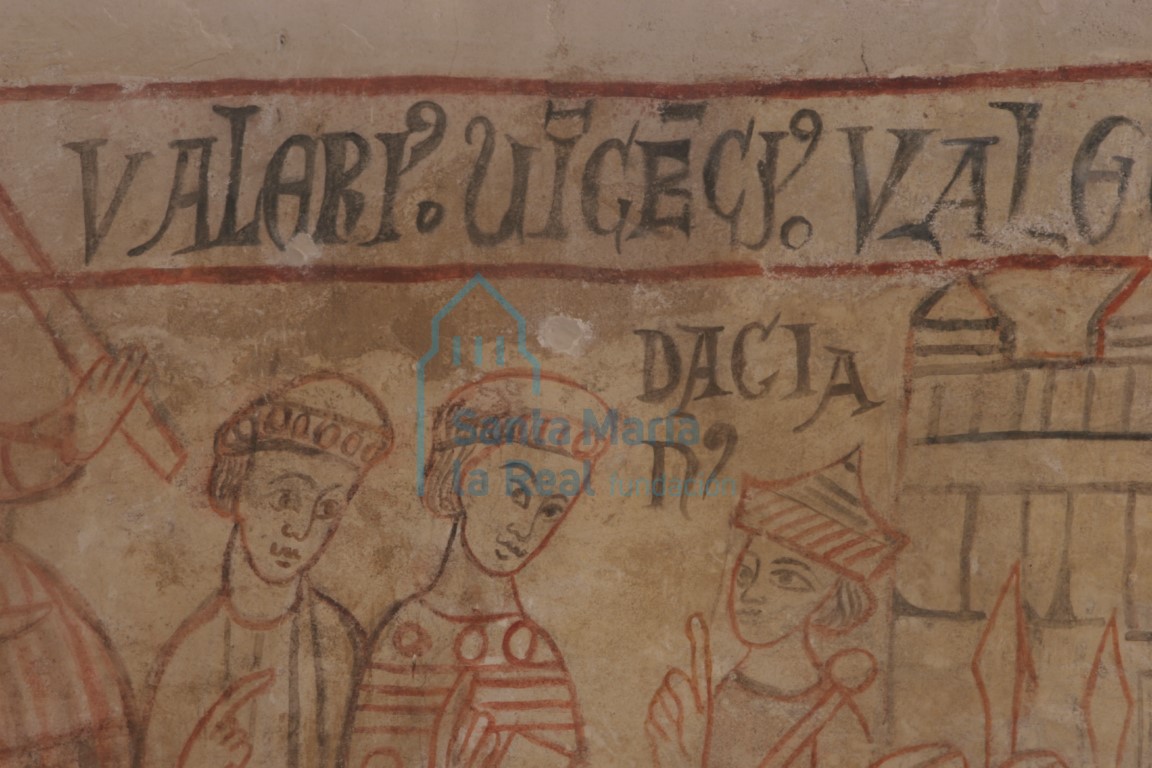 VALERIꝰ. UĪCĒCIꝰ. VALE
DACIA
Nꝰ
Santa María
la Real fundación